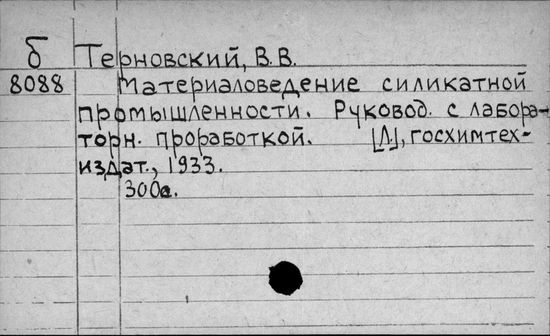 б Терновский, В.В.
8088 Материаловедение силикатной
промышленности. Руковод. с лабора-
торн. проработкой. [Л.], госхимтех-
издат., 1933.
300с.